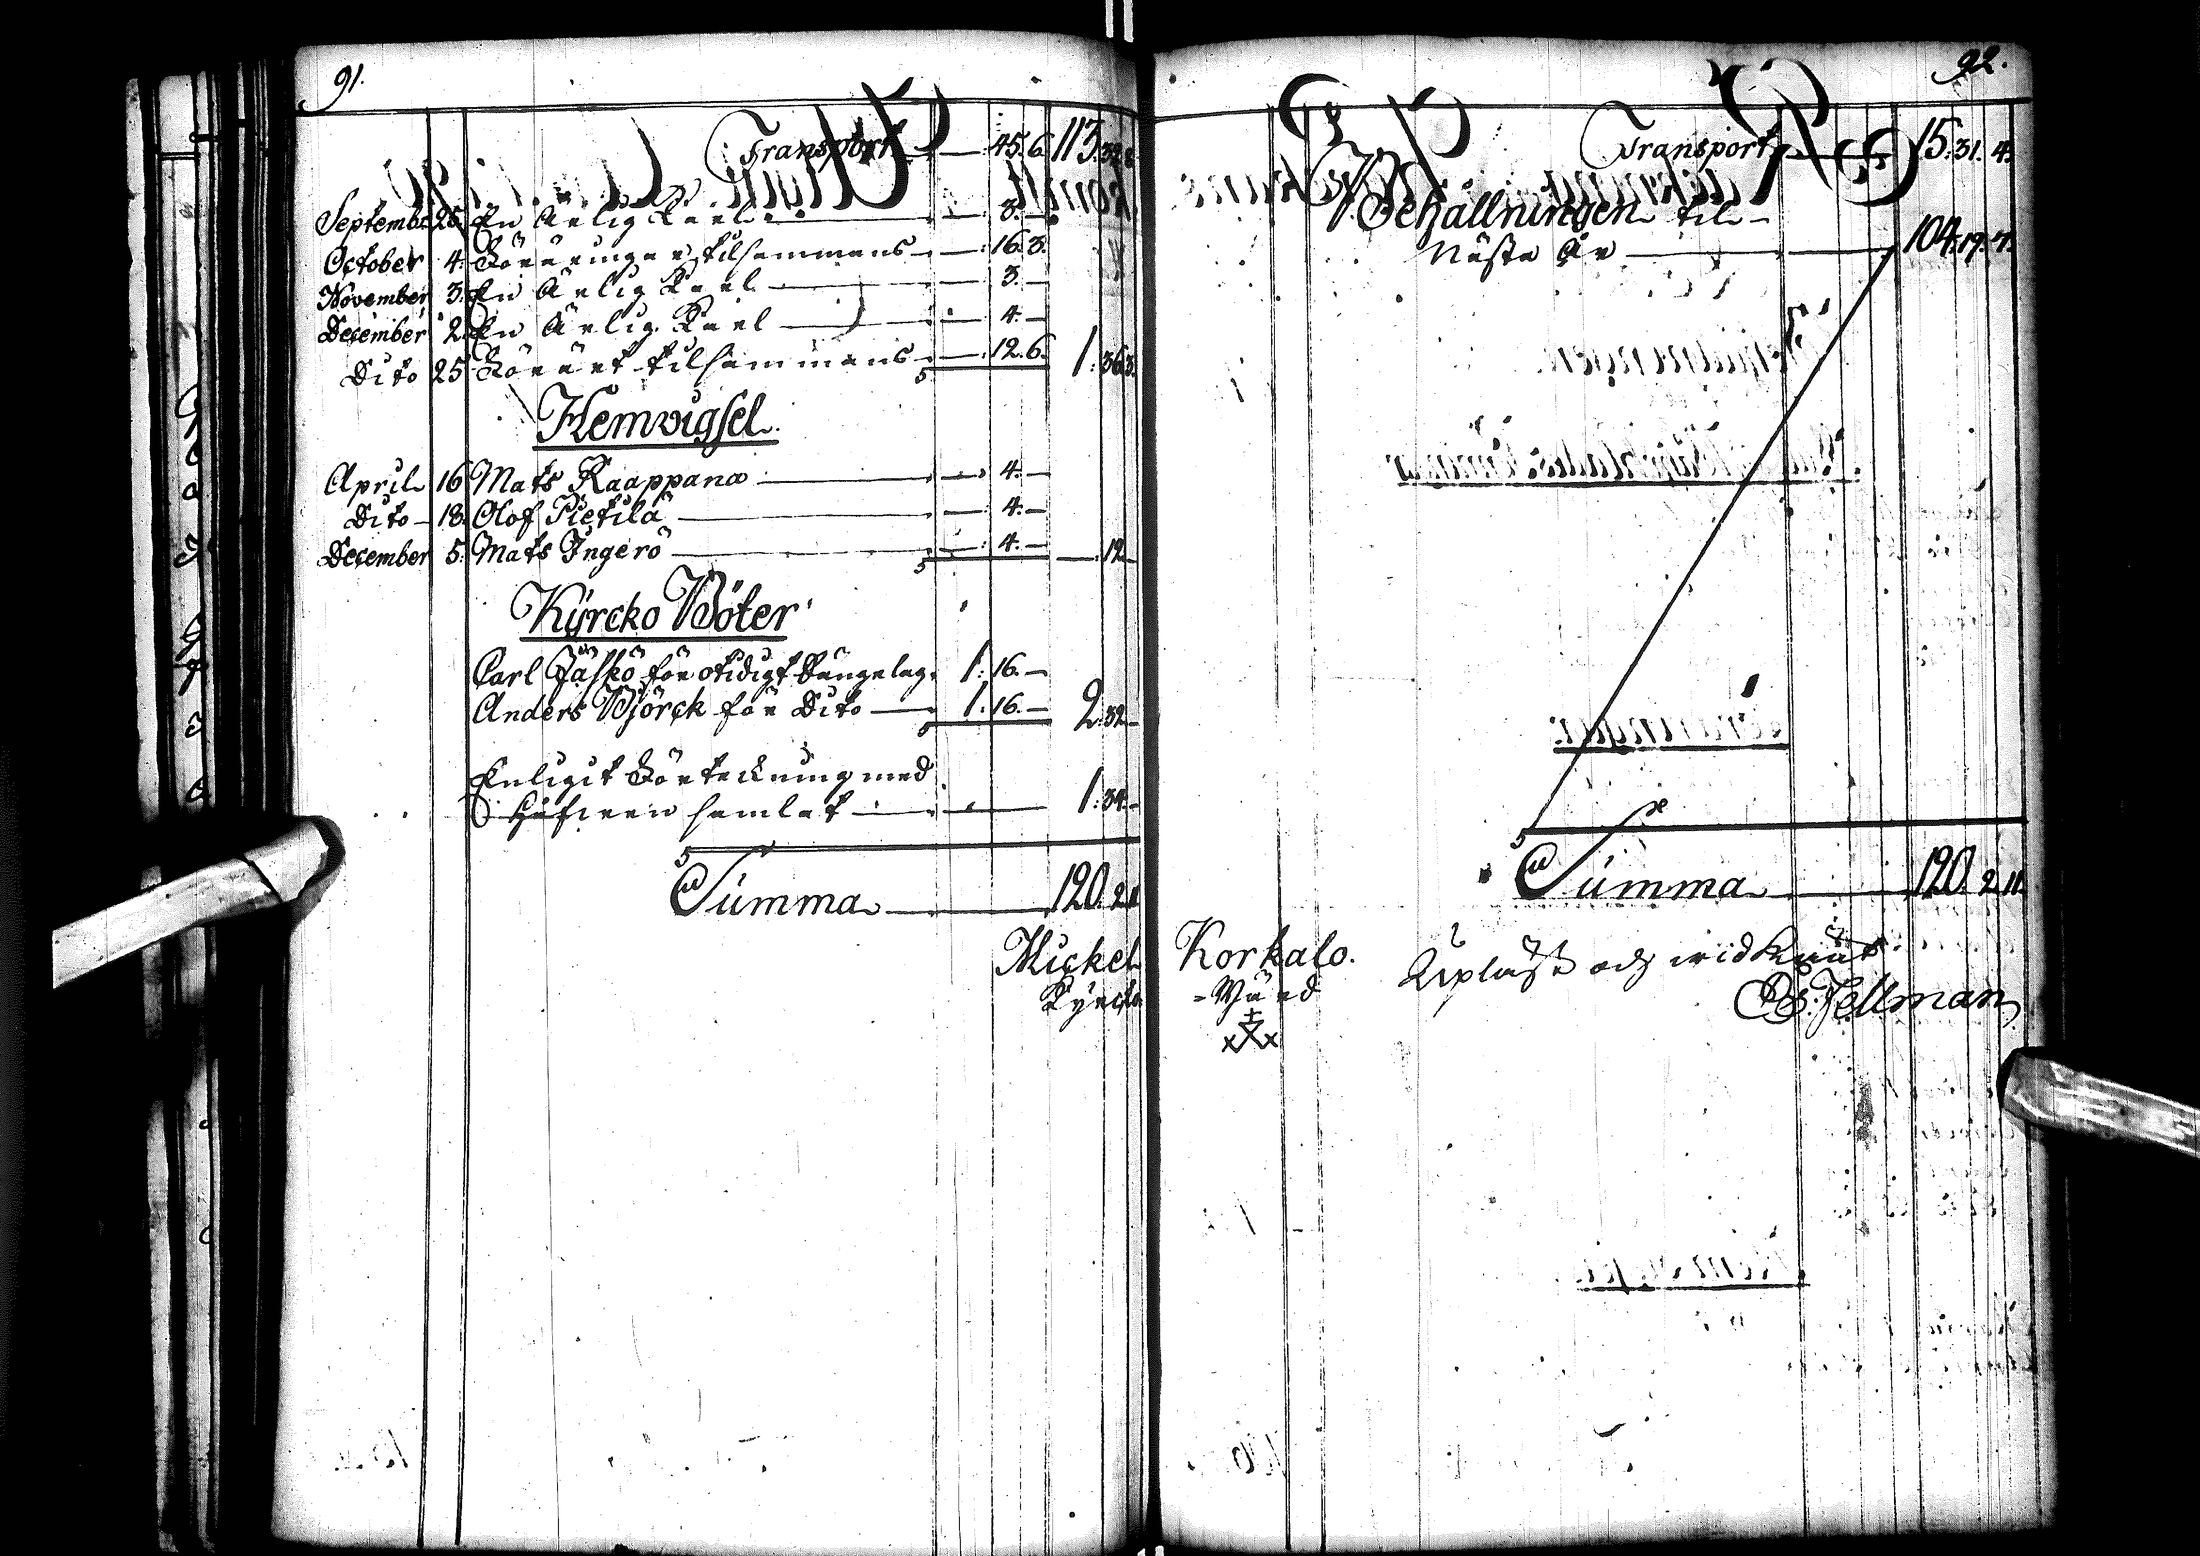 91.
Transport — 45. 6. 113. 32. 8.
Septemb: 25. En Ärlig Karl — 3. —
October 4. Föräringar tilsammans — 16. 3.
November 3. En Ärlig Karl — 3. —
December 2. En Ärlig Karl — 4. —
Dito 25 Förärt tilsammans — 12. 6. 1: 36. 3.
Hemvigsel.
April 16 Mats Kaappana — 4. —
Dito — 18. Olof Pietilä — 4. —
December 5. Mats Ingerö — 4. — — 12. —
Kyrcko Böter
Carl Jäskö för otidigt Sängelag. 1: 16. —
Anders Björck för Dito — 1: 16. — 2: 32. —
Enligit Förteckning med
Håfven samlat — 1: 34. —
Summa — 120. 2. 11.
Mickel
Kyrcko
92.
Transport — 15: 31. 4.
Behållningen til
Nästa År — 104: 19. 7.
Summa — 120. 2. 11.
Korkalo.
= Wärd
Upläst och widkänt
Es. Fellman